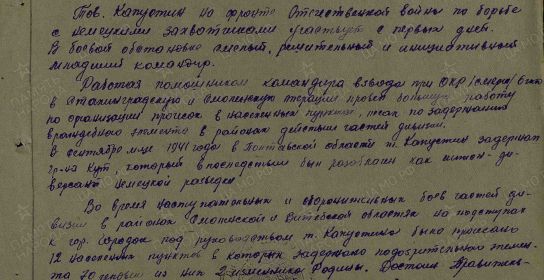 Тов. Капустин на фронте Отечественной войны по борьбе
с немецкими захватчиками участвует с первых дней.
В боевой обстановке смелый, решительный и инициативный
младший командир.
Работая помощником командира взвода при ОКР
в Сталинградскую и Смоленскую операции провел большую работу
по организации прочесок в населенных пунктах, лесах по задержанию
враждебного элемента в районах действий частей дивизии.
В сентябре м-це 1941 года в Полтавской области т. Капустин задержал
гр-на Кут, который впоследствии был разоблачен как шпион-ди-
версант немецкой разведки.
Во время наступательных и оборонительных боев частей ди-
визии в районах Смоленской и Витебской областях на подступах
к гор. Городок под руководством т. Капустина было прочесано
12 населенных пунктов в которых задержано подозрительного элемен-
та 70 человек из них 2 изменника Родины. Достоин Правитель-